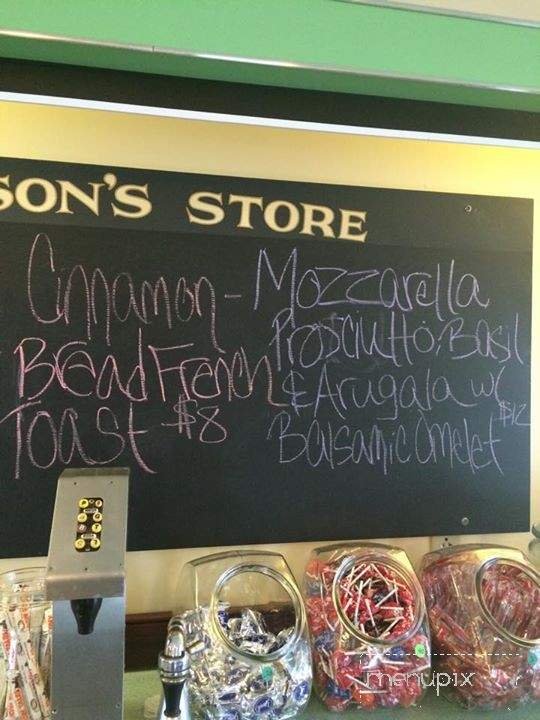 SON'S STORE
Cinnamon-
Bread French
Toast $8
Mozzarella
Prosciutto, Basil
& Arugala w/
Balsamic Omelet $12
menupix